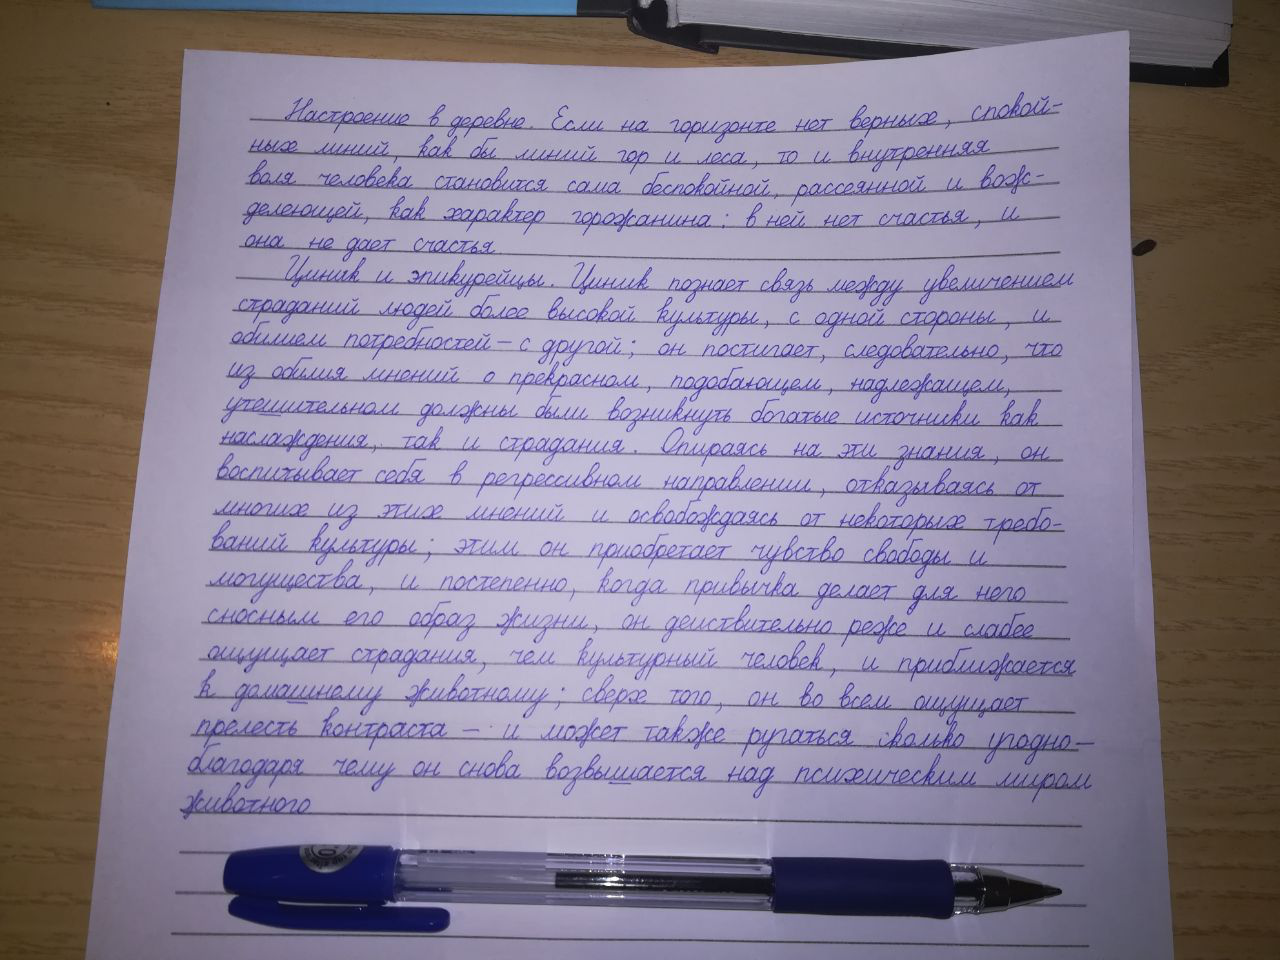 Настроение в деревне. Если на горизонте нет верных, спокой-
ных линий, как бы линий гор и леса, то и внутренняя
воля человека становится сама беспокойной, рассеянной и вож-
делеющей, как характер горожанина: в ней нет счастья, и
она не дает счастья.
Циник и эпикурейцы. Циник познает связь между увеличением
страданий людей более высокой культуры, с одной стороны, и
обилием потребностей – с другой; он постигает, следовательно, что
из обилия мнений о прекрасном, подобающем, надлежащем,
утешительном должны были возникнуть богатые источники как
наслаждения, так и страдания. Опираясь на эти знания, он
воспитывает себя в регрессивном направлении, отказываясь от
многих из этих мнений и освобождаясь от некоторых требо-
ваний культуры; этим он приобретает чувство свободы и
могущества, и постепенно, когда привычка делает для него
сносным его образ жизни, он действительно реже и слабее
ощущает страдания, чем культурный человек, и приближается
к домашнему животному; сверх того, он во всем ощущает
прелесть контраста – и может также ругаться сколько угодно –
благодаря чему он снова возвышается над психическим миром
животного